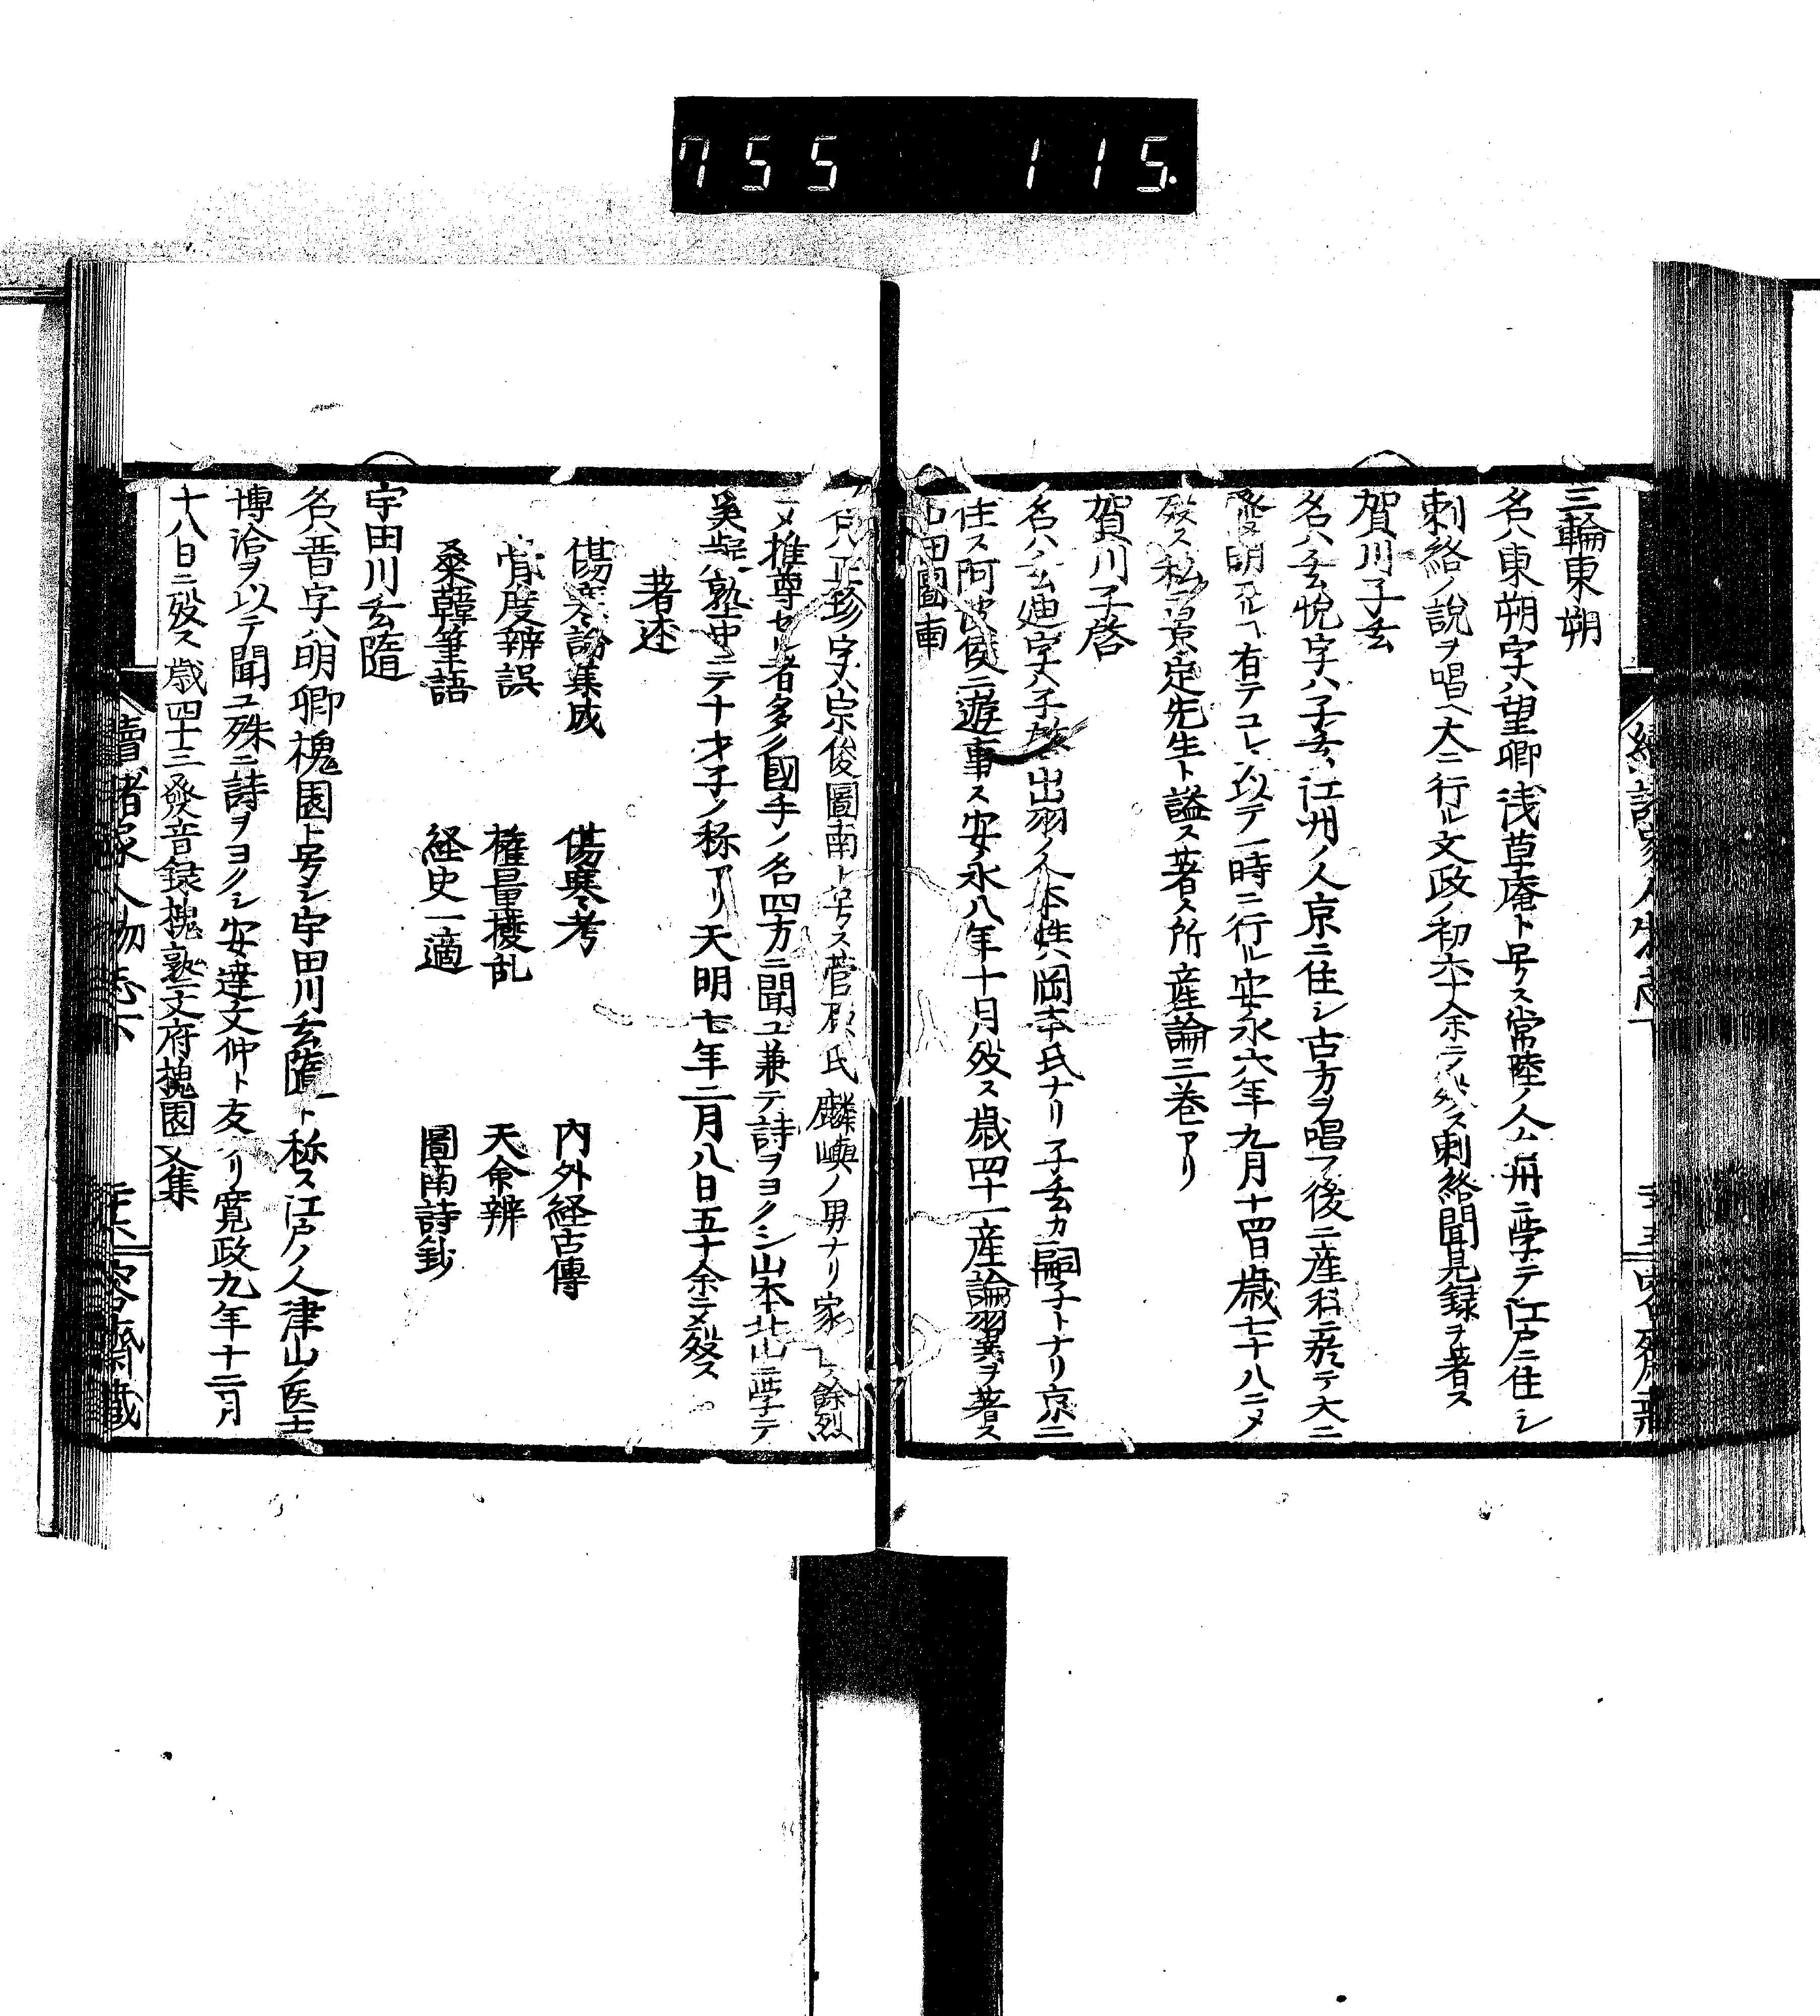 755 115.
三輪東朔
名ハ東朔字ハ望卿浅草庵ト号ス常陸ノ人ニ学テ江戸ニ住シ
刺絡ノ説ヲ唱ヘ大ニ行ル文政ノ初六十余ニテス刺絡聞見録ヲ著ス
賀川子玄
名ハ玄悦字ハ子玄江州ノ人京ニ住シ古方ヲ唱フ後ニ産科ニ於テ大ニ
發明スル有テコレヲ以テ一時ニ行ル安永六年九月十四日歳七十八ニメ
歿ス私ニ定先生ト謚ス著ス所産論三巻アリ
賀川子啓
名ハ玄廸字ハ子啓出羽ノ人本姓ハ岡本氏ナリ子玄カ嗣子トナリ京ニ
住ス阿波侯ニ遊事ス安永八年十月歿ス歳四十一産論翼ヲ著ス
山田圖南
名ハ正珍字ハ宗俊圖南ト号ス菅原氏麟嶼ノ男ナリ家ノ餘烈
ヲ推尊セル者多ク國手ノ名四方ニ聞ユ兼テ詩ヲヨクシ山本北山ニ学テ
奚疑塾中ニテ十才子ノ称アリ天明七年二月八日五十余ニメ歿ス
著述
傷寒論集成 傷寒考 内外経古傳
骨度辨誤 權量撥乱 天命辨
桑韓筆語 経史一適 圖南詩鈔
宇田川玄隨
名ハ晋字ハ明卿槐園ト号シ宇田川玄隨ト称ス江戸ノ人津山ノ医士
博洽ヲ以テ聞ユ殊ニ詩ヲヨクシ安達文仲ト友ナリ寛政九年十二月
十八日ニ歿ス歳四十三發音録槐塾文府槐園文集
續諸家人物志下